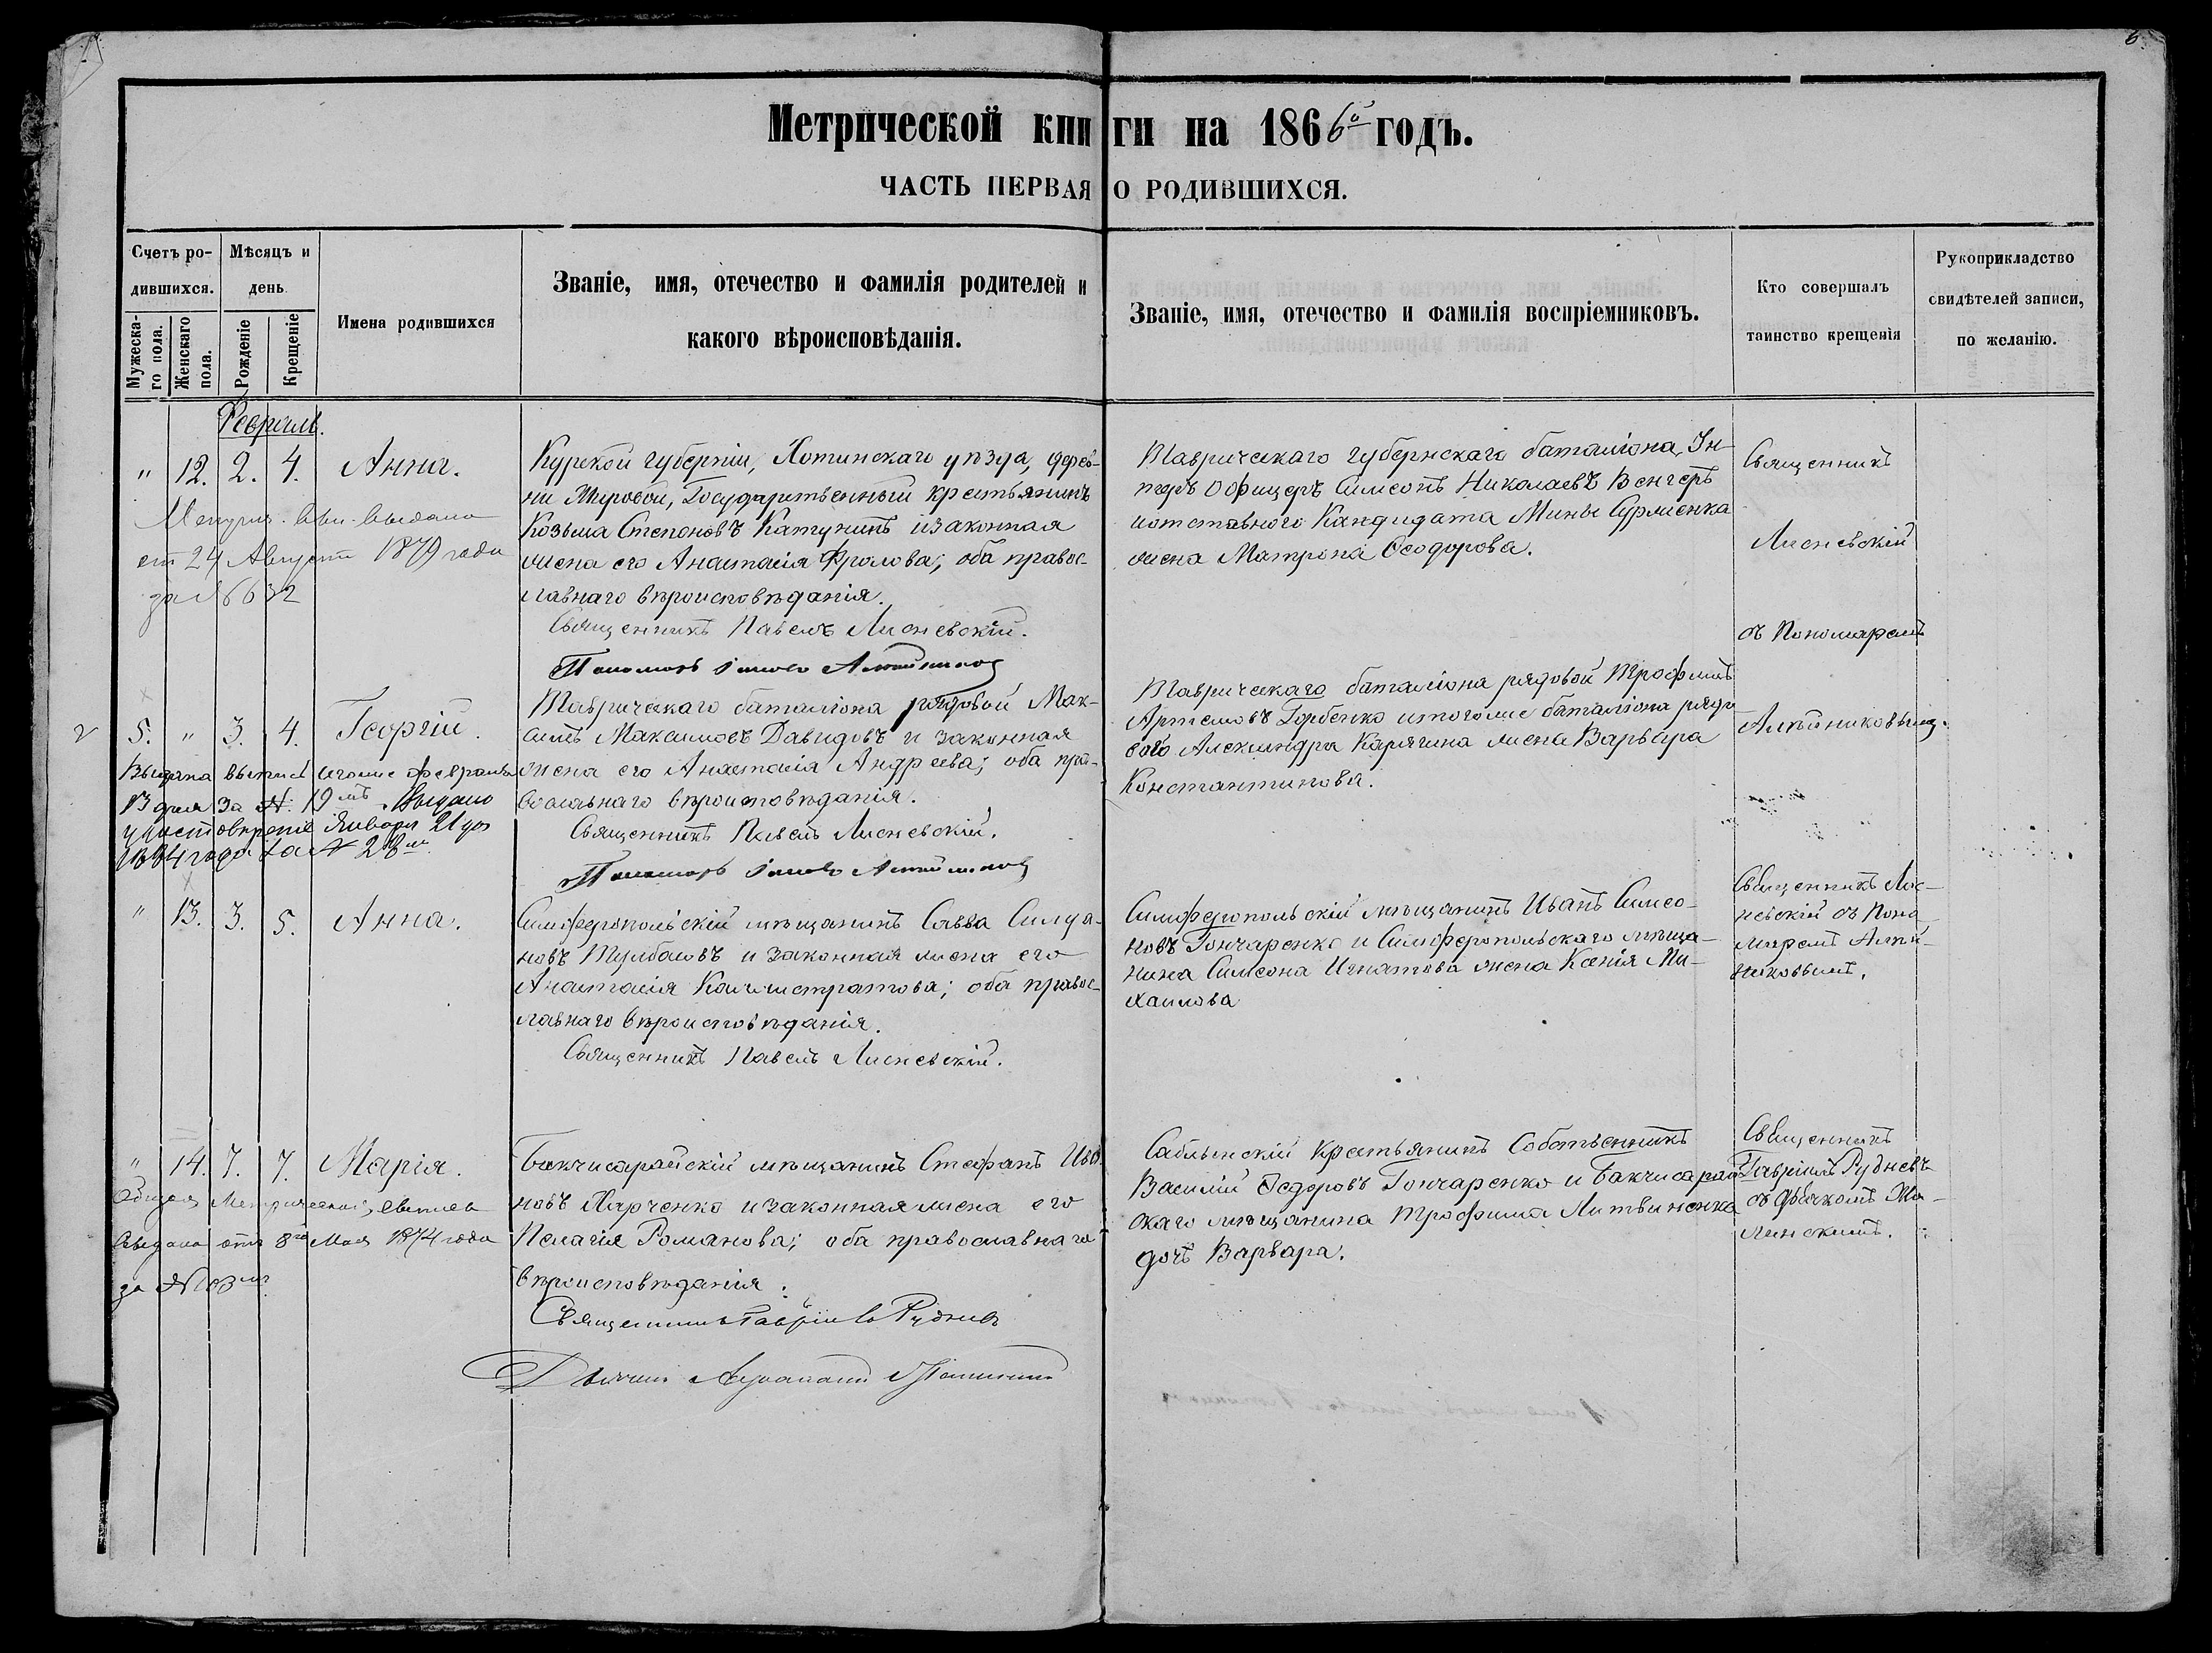 6.
Метрической книги на 1866й годъ.
ЧАСТЬ ПЕРВАЯ О РОДИВШИХСЯ.
Счетъ родившихся.
Мѣсяцъ и день
Мужескаго пола.
Женскаго пола.
Рожденіе
Крещеніе
Имена родившихся
Званіе, имя, отечество и фамилія родителей и
какого вѣроисповѣданія.
Званіе, имя, отечество и фамилія воспріемниковъ.
Кто совершалъ
таинство крещенія
Рукоприкладство
свидѣтелей записи,
по желанію.
Февраль.
" 12. 2. 4. Анна.
выдано
24 Августа 1879 года
за № 632
Курской губерніи, Хотинскаго уѣзда, дерев-
ни Мировой, Государственный крестьянинъ
Козьма Степоновъ Катунинъ и законная
жена его Анастасія Фролова; оба правос-
лавнаго вѣроисповѣданія.
Священникъ Павелъ Лисневскій.
Пономарь
Таврическаго губернскаго баталіона, Ун-
теръ Офицеръ Симеонъ Николаевъ Венгеръ
и отставного Кандидата Мины Сурменка
жена Матрона Ѳеодорова.
Священникъ
Лисневскій
съ Пономаремъ
Алейниковымъ.
5. " 3. 4. Георгій.
Выдана выпись сегоже февраля
13 дня за № 19мъ. Выдано
удостовѣреніе Января 21 дня
1884 года за № 28м
Таврическаго баталіона рядовой Мак-
симъ Максимовъ Давидовъ и законная
жена его Анастасія Андреева; оба пра-
вославнаго вѣроисповѣданія.
Священникъ Павелъ Лисневскій.
Пономарь
Таврическаго баталіона рядовой Трофимъ
Артемовъ Горбенко и тогоже баталіона рядо
вого Александра Карягина жена Варвара
Константинова.
" 13. 3. 5. Анна.
Симферопольскій мѣщанинъ Савва Силуа-
новъ Тумбасовъ и законная жена его
Анастасія Каллистратова; оба правос-
лавнаго вѣроисповѣданія.
Священникъ Павелъ Лисневскій.
Симферопольскій мѣщанинъ Иванъ Симео-
новъ Гончаренко и Симферопольскаго мѣща-
нина Симеона Игнатова жена Ксенія Ми-
хаилова
Священникъ Лис-
невскій съ Поно
маремъ Алей-
никовымъ.
" 14. 7. 7. Марія.
Метрической выпись
выдана отъ 8го Мая 1874 года
за № 103м
Бакчисарайскій мѣщанинъ Стефанъ Ива
новъ Харченко и законная жена его
Пелагія Романова; оба православнаго
вѣроисповѣданія.
Священникъ Гавріилъ Рудневъ
Дьячокъ
Саблынскій крестьянинъ Собственникъ
Василій Ѳедоровъ Гончаренко и Бакчисарай
скаго мѣщанина Трофима Литвиненка
дочь Варвара.
Священникъ
Гавріилъ Рудневъ
съ дьячкомъ